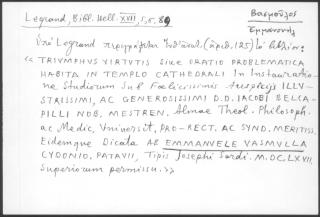 Legrand, Bibl. Hell. XVII, τ. 5. σ. 89
Βασμούλος
Ἐμμανουήλ
Ὑπό Legrand περιγράφεται (ἀριθ. 125) τό βιβλίον:
« TRIVMPHVS VIRTVTIS Siue ORATIO PROBLEMATICA
HABITA IN TEMPLO CATHEDRALI In Instauratio-
ne Studiorum Sub Foelicissimis Auspicijs ILLV-
STRISSIMI, AC GENEROSISSIMI D.D. IACOBI BELCA-
PILLI NOB. MESTREN. Almae Theol. Philosoph.
ac Medic. Vniversit, PRO-RECT. AC SYND. MERITISS.
Eidemque Dicata AB EMMANVELE VASMVLLA
CYDONIO, PATAVII, Tipis Iosephi Sardi. M.DC.LXVII.
Superiorum permissu. »